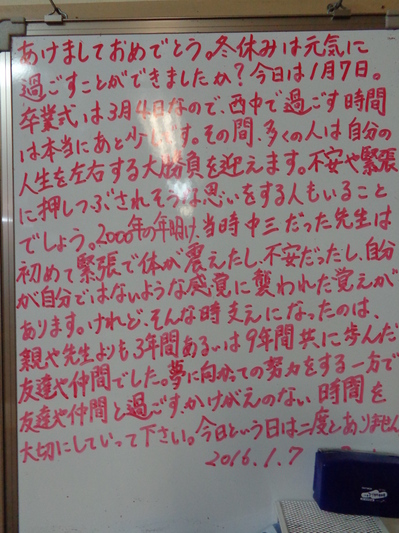 あけましておめでとう。冬休みは元気に
過ごすことができましたか？今日は1月7日。
卒業式は3月4日なので、西中で過ごす時間
は本当にあと少しです。その間、多くの人は自分の
人生を左右する大勝負を迎えます。不安や緊張
に押しつぶされそうな思いをする人もいること
でしょう。2000年の年明け、当時中三だった先生は
初めて緊張で体が震えたし、不安だったし、自分
が自分ではないような感覚に襲われた覚えが
あります。けれど、そんな時支えになったのは、
親や先生よりも3年間あるいは9年間共に歩んだ
友達や仲間でした。夢に向かっての努力をする一方で
友達や仲間と過ごすかけがえのない時間を
大切にしていって下さい。今日という日は二度とありません
2016.1.7